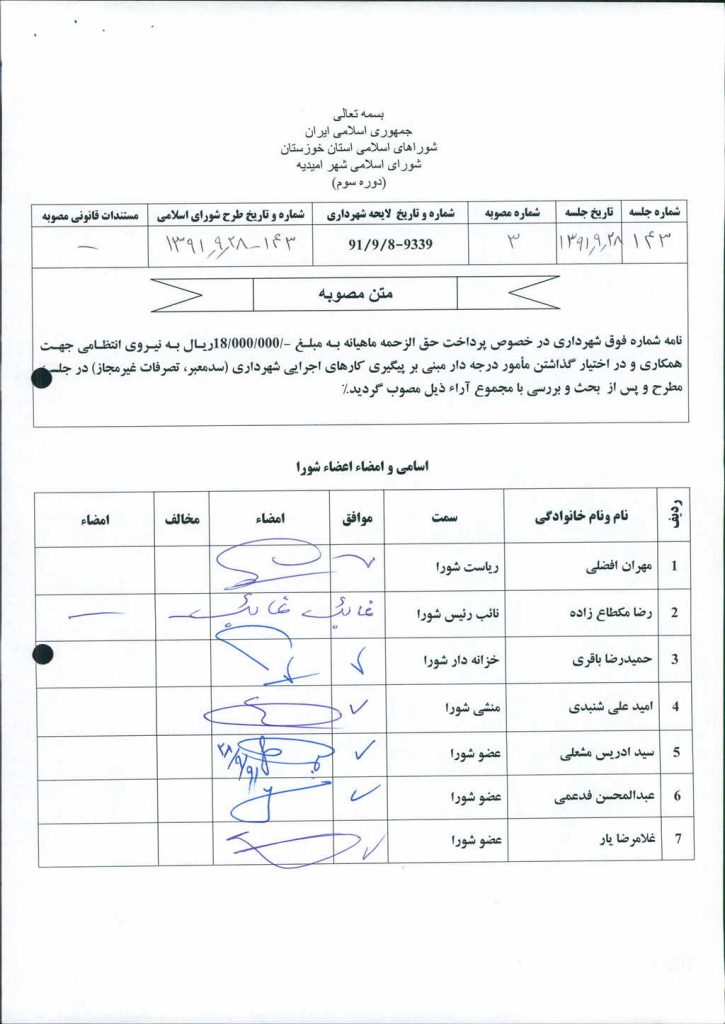 بسمه تعالی
جمهوری اسلامی ایران
شوراهای اسلامی استان خوزستان
شورای اسلامی شهر امیدیه
(دوره سوم)
شماره جلسه تاریخ جلسه شماره مصوبه شماره و تاریخ لایحه شهرداری شماره و تاریخ طرح شورای اسلامی مستندات قانونی مصوبه
۱۴۳ ۱۳۹۱٫۹٫۲۸ ۳ 91/9/8-9339 ۱۴۳-۱۳۹۱٫۹٫۲۸ —
متن مصوبه
نامه شماره فوق شهرداری در خصوص پرداخت حق الزحمه ماهیانه به مبلغ -/18/000/000ریال به نیروی انتظامی جهت
همکاری و در اختیار گذاشتن مأمور درجه دار مبنی بر پیگیری کارهای اجرایی شهرداری (سدمعبر، تصرفات غیرمجاز) در جلسه
مطرح و پس از بحث و بررسی با مجموع آراء ذیل مصوب گردید.٪
اسامی و امضاء اعضاء شورا
ردیف نام ونام خانوادگی سمت موافق امضاء مخالف امضاء
1 مهران افضلی ریاست شورا
2 رضا مکطاع زاده نائب رئیس شورا غائب غائب — —
3 حمیدرضا باقری خزانه دار شورا ✓
4 امید علی شنبدی منشی شورا ✓
5 سید ادریس مشعلی عضو شورا ✓ ۹۱/۹/۲۸
6 عبدالمحسن فدعمی عضو شورا ✓
7 غلامرضا یار عضو شورا ✓